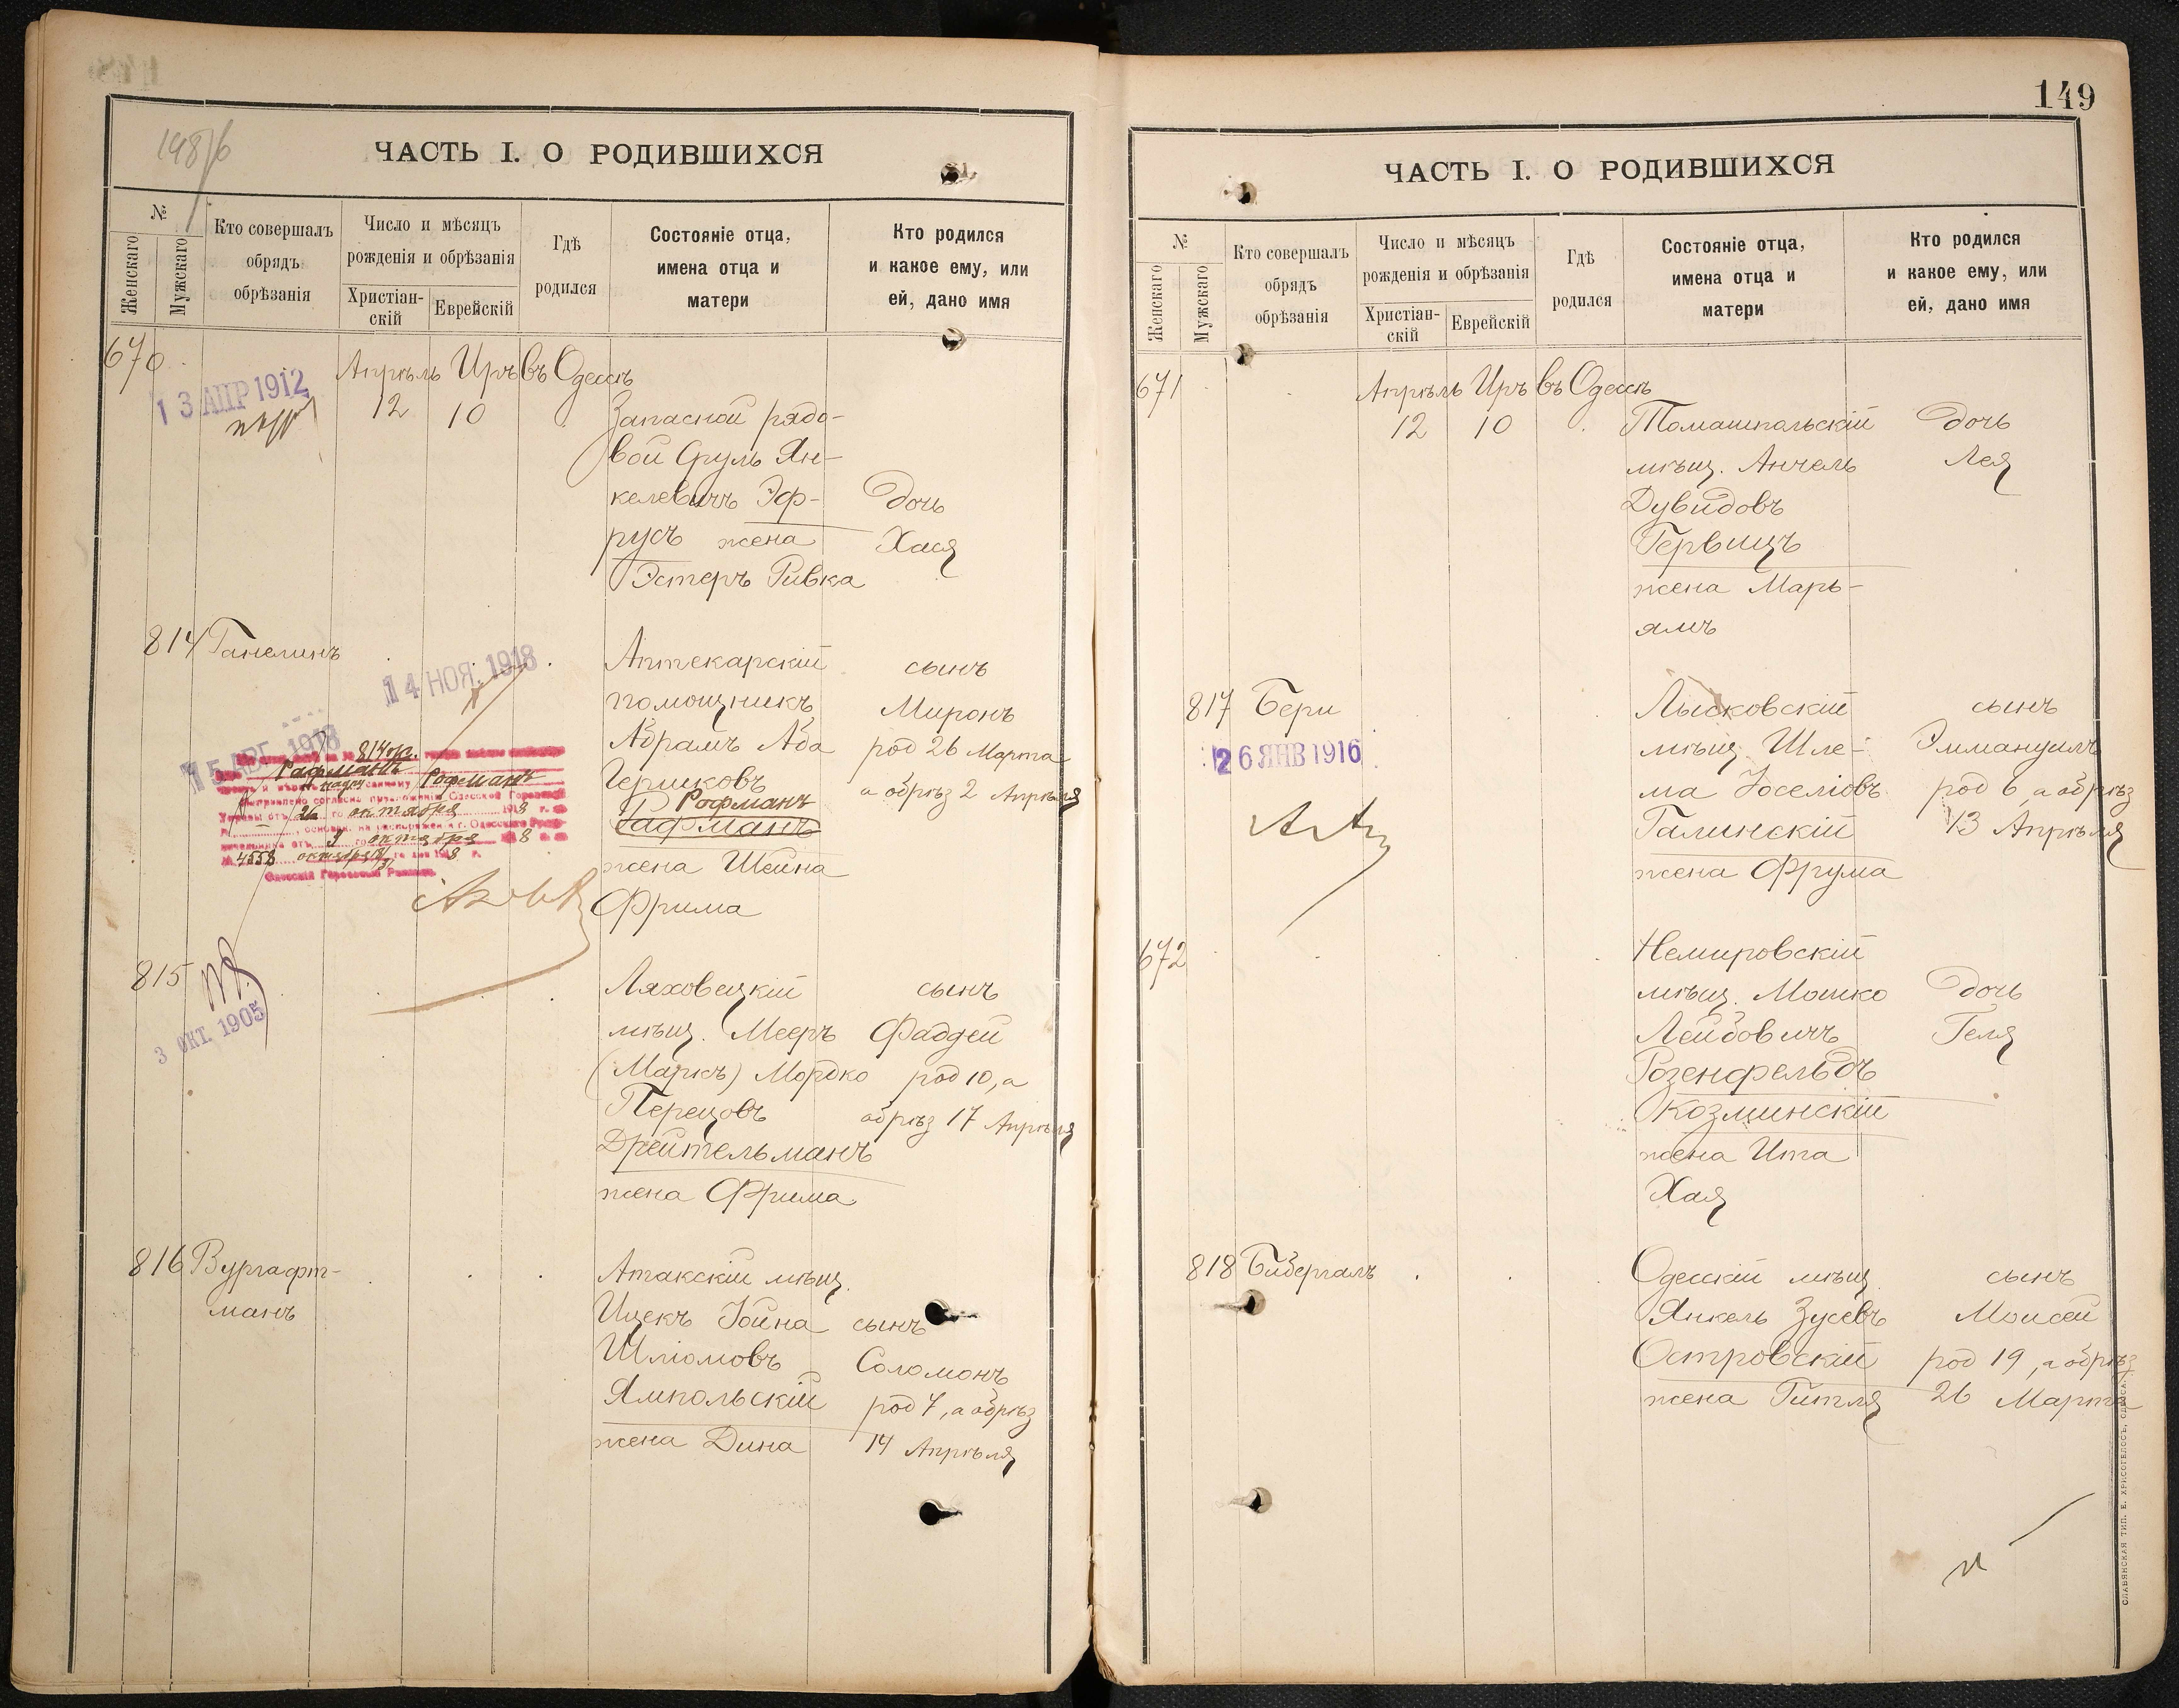 149
148/б
ЧАСТЬ I. О РОДИВШИХСЯ
№
Женскаго
Мужскаго
Кто совершалъ
обрядъ
обрѣзанія
Число и мѣсяцъ
рожденія и обрѣзанія
Христіан-
скій
Еврейскій
Гдѣ
родился
Состояніе отца,
имена отца и
матери
Кто родился
и какое ему, или
ей, дано имя
670
13 АПР 1912
Апрѣль Иръ въ Одессѣ
12 10
Запасной рядо-
вой Сруль Ян-
келевичъ Эф-
русъ жена
Эстеръ Ривка
Дочь
Хася
814 Ганелинъ
14 НОЯ. 1918
Аптекарскій
помощникъ
Абрамъ Аба
Гершковъ
Рофманъ
Рафманъ
жена Шейна
Фрима
сынъ
Миронъ
род 26 Марта
а обрѣз 2 Апрѣля
15 АВГ. 1918
814
Рафманъ
Рофманъ
26 го октября 1918 г.
9 го октября 1918
№ 4558 октября
Одесскій Городовой Раввинъ
815
3 ОКТ. 1905
Ляховецкій
мѣщ. Мееръ
(Маркъ) Мордко
Перецовъ
Дрейтельманъ
жена Фрима
сынъ
Фаддей
род 10, а
обрѣз 17 Апрѣля
816 Вургафт-
манъ
Атакскій мѣщ.
Ицекъ Іойна
Шліомовъ
Ямпольскій
жена Дина
сынъ
Соломонъ
род 7, а обрѣз
14 Апрѣля
ЧАСТЬ I. О РОДИВШИХСЯ
№
Женскаго
Мужскаго
Кто совершалъ
обрядъ
обрѣзанія
Число и мѣсяцъ
рожденія и обрѣзанія
Христіан-
скій
Еврейскій
Гдѣ
родился
Состояніе отца,
имена отца и
матери
Кто родился
и какое ему, или
ей, дано имя
671
Апрѣль Иръ въ Одессѣ
12 10
Томашпольскій
мѣщ. Анчель
Дувидовъ
Гервицъ
жена Марь-
ямъ
Дочь
Лея
817 Бери
26 ЯНВ 1916
Лысковскій
мѣщ. Шле-
ма Іоселіовъ
Галинскій
жена Фрума
сынъ
Эммануилъ
род 6, а обрѣз
13 Апрѣля
672
Немировскій
мѣщ. Мошко
Лейбовичъ
Розенфельдъ
Козминскій
жена Ита
Хая
Дочь
Геля
818 Бибергалъ
Одесскій мѣщ.
Янкель Зусевъ
Островскій
жена Гитля
сынъ
Моисей
род 19, а обрѣз
26 Марта
СЛАВЯНСКАЯ ТИП. Е. ХРИСОГЕЛОСЪ, ОДЕССА.